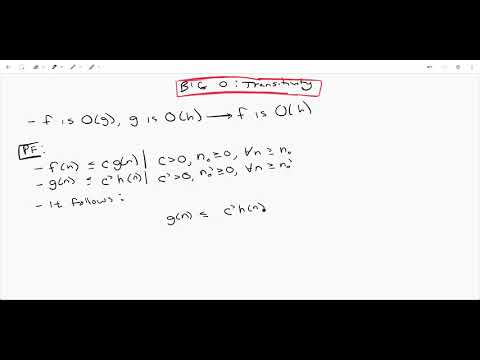 BIG O: Transitivity
- f is O(g), g is O(h) → f is O(h)
PF:
- f(n) ≤ c g(n) | c>0, n₀≥0, ∀n ≥ n₀
- g(n) ≤ c' h(n) | c'>0, n₀'≥0, ∀n ≥ n₀'
- It follows:
g(n) ≤ c' h(n)